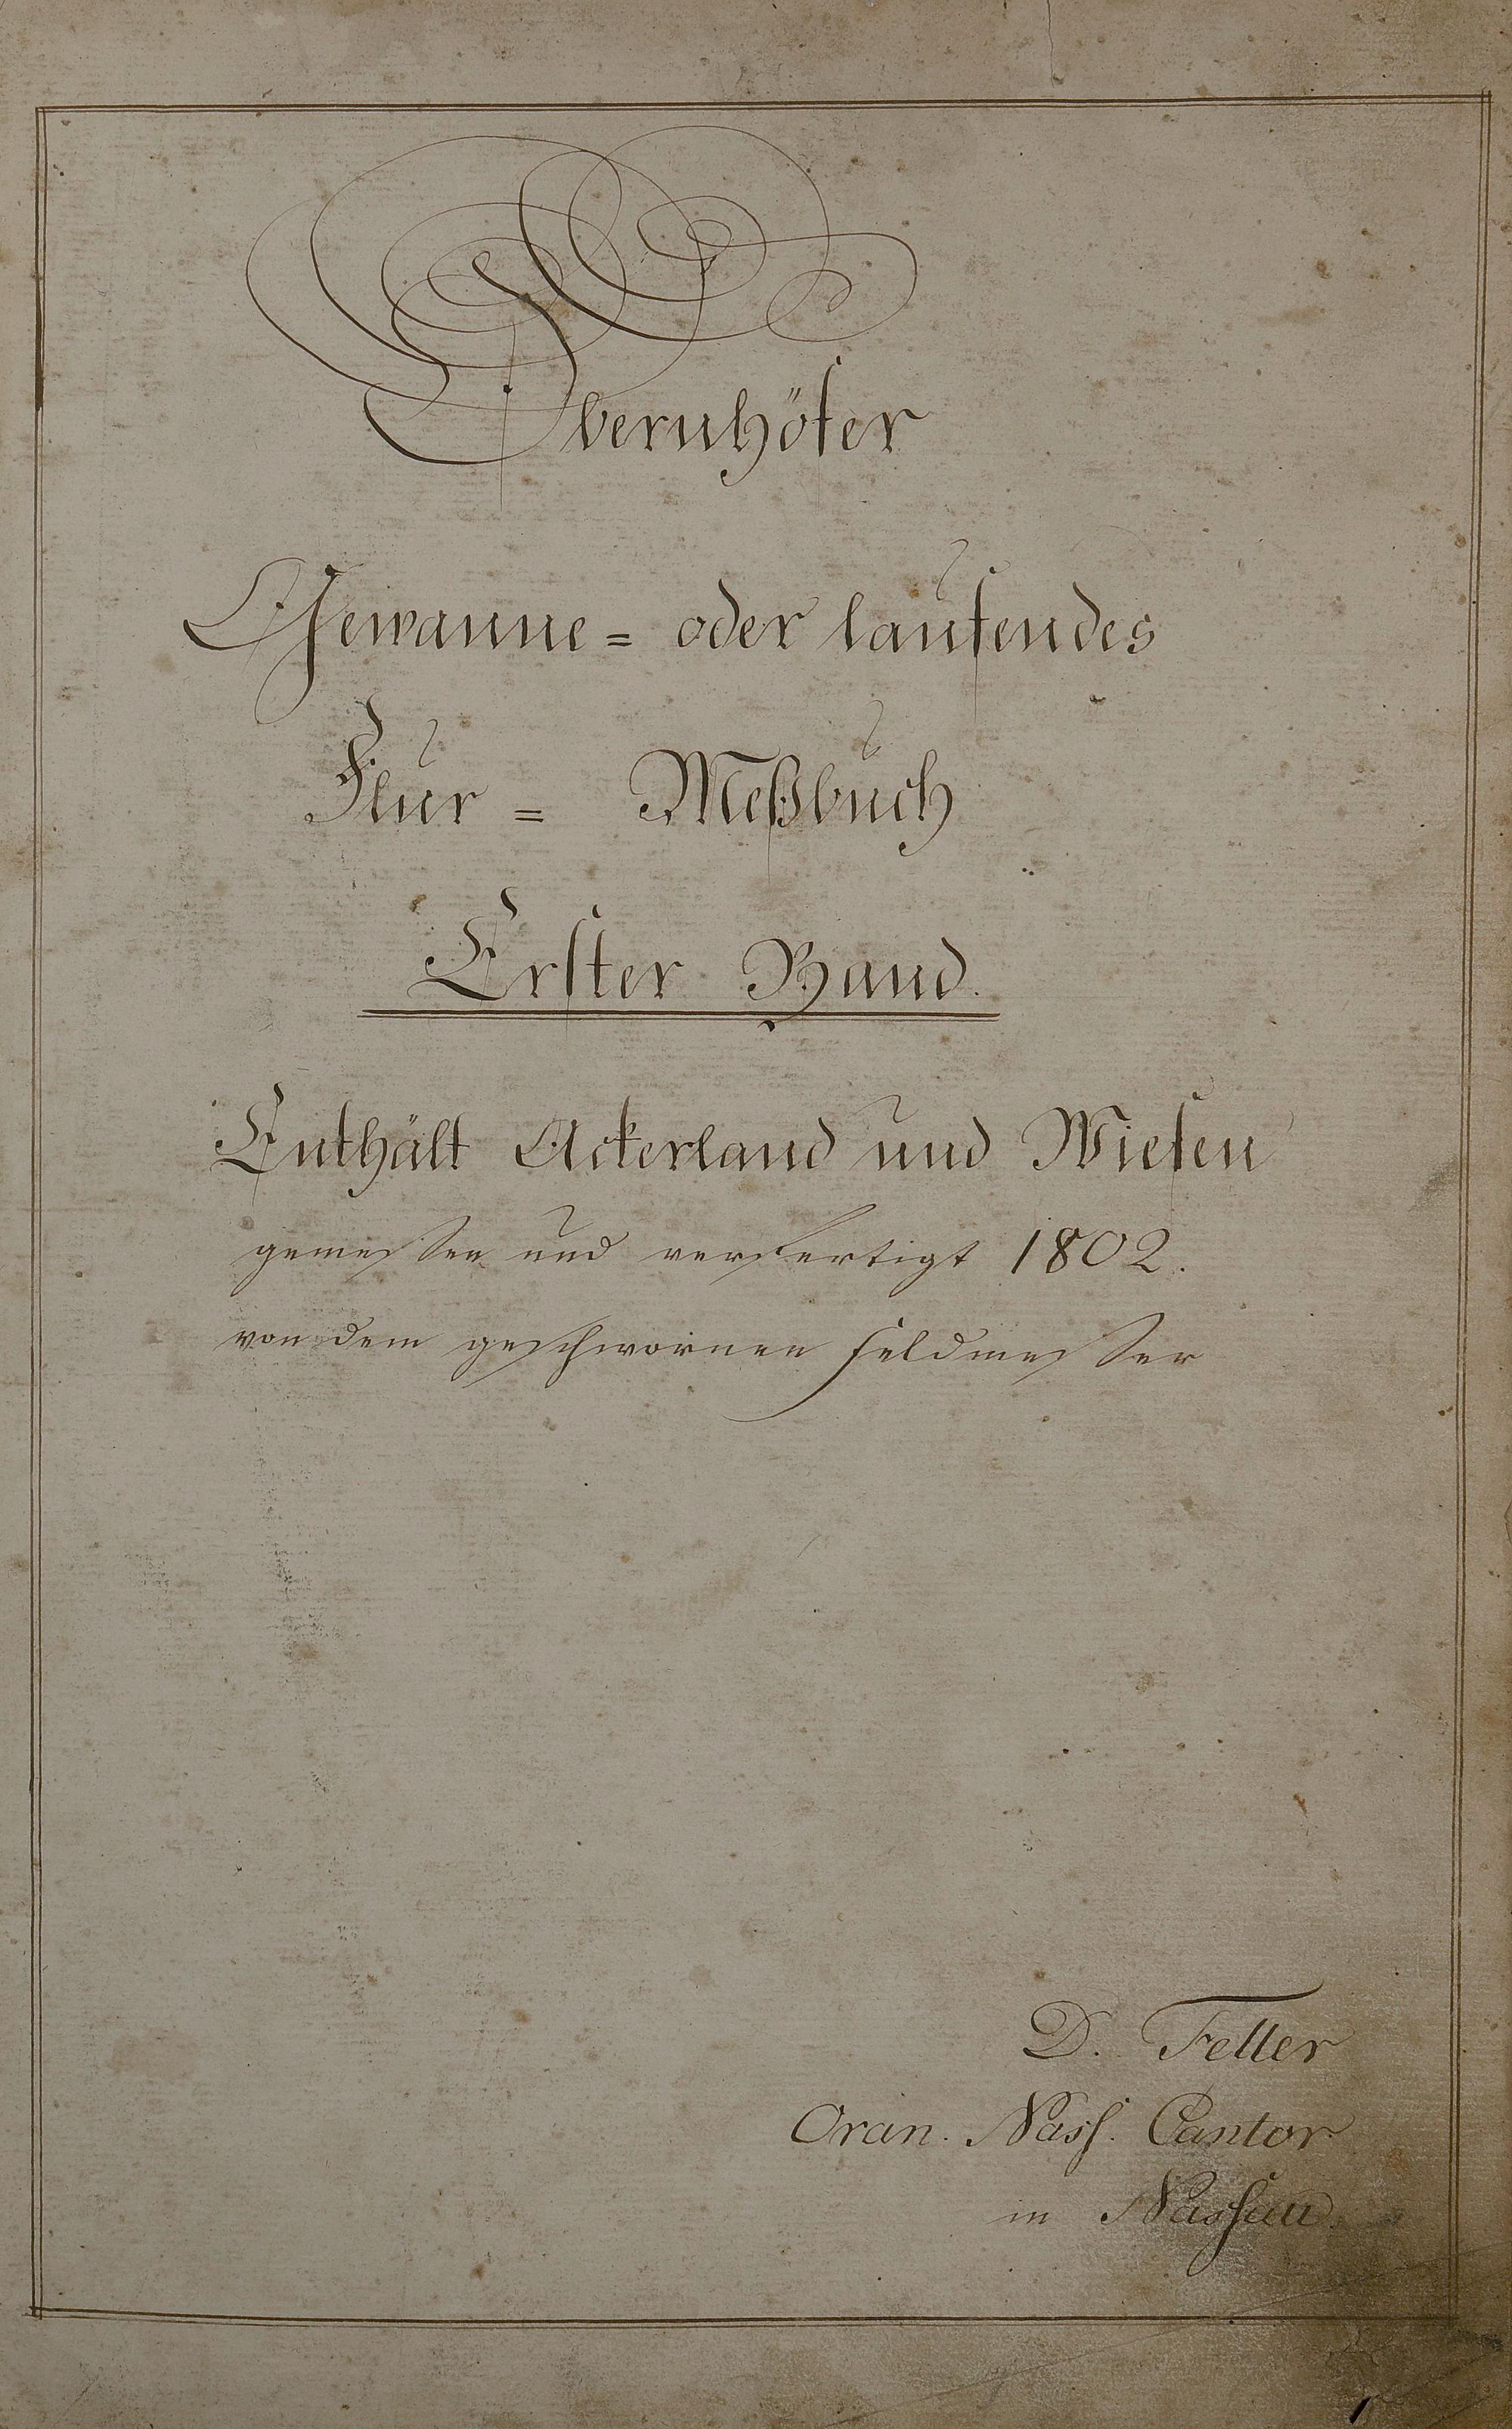 Obernhöfer
Gewanne= oder laufendes
Flur= Meßbuch
Erster Band.
Enthält Ackerland und Wiesen
gemessen und verfertigt 1802.
von dem geschwornen Feldmesser
D. Feller
Oran. Nass. Cantor
in Nassau.